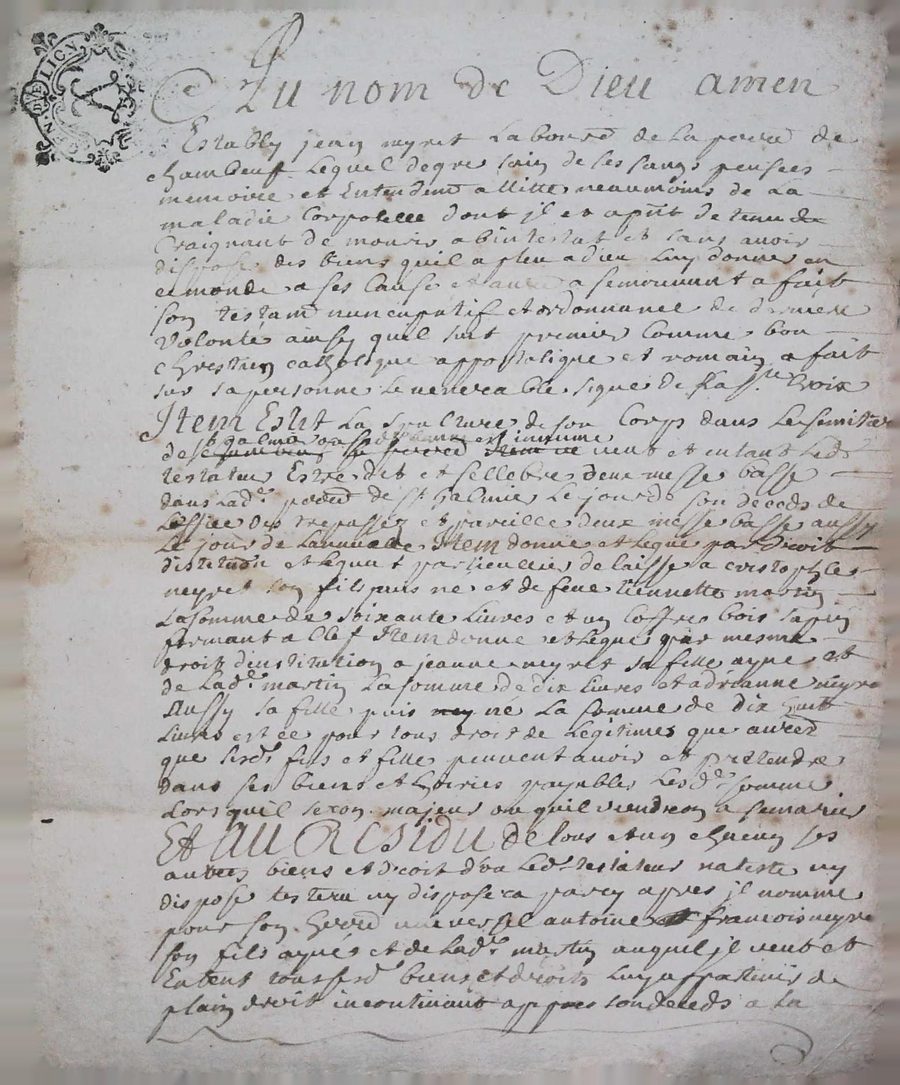 GN. DE LION
Au nom de Dieu amen
Estably jean neyret laboure de la parr de
chambeuf lequel de gre sain de ses sans pensees
memoire et Entendem a Luitte neaumoins de la
maladie Corporelle dont jl est de tenu
Craignant de mourir abintestat et sans avoir
dispose des biens quil a pleu a dieu luy donner en
ce monde a ses Cause a fait
son testam nuncupatif et ordonnance de derniere
volonté ainsy quil suit premier Comme bon
chrestien catholique appostolique et romain a fait
sur sa personne le venerable signe de la ste Croix
Item Eslit La Sepulture de son Corp dans le semitier
de St galmier sa parr
veut et entant led
testateur Estre dit et sellebre deux messe basse
dans lad parr de St galmier le jour de son deceds de
Loffice des trepassez et pareille deux messe basse aussy
le jour de lannuale Item donne et legue par droit
distitution et legat particullier delaisse a cristophle
neyret son fils puis ne et de feue Jennette martin
La somme de soixante Livres et un Coffre bois sapin
fermant a Clef Item donne et legue par mesme
droit dinstitution a jeanne neyret sa fille ayne et
de lad martin La somme de dix livres et adrianne neyre
Aussy sa fille puis ne La somme de dix huit
Livres et ce pour tous droit de Legitimes que
que sesd fils et fille peuvent avoir et prettendre
dans ses biens et hoiries payables Lesd somme
Lors quil seron majeur ou quil viendron a se marier
Et au Residu de tous et un chacun ses
autres biens et droit dou led testateur na teste ny
dispose ny disposera par cy apres jl nomme
pour son herr universel antoine francois neyre
son fils aynes et de lad martin auquel jl veut et
Entent sesd biens et droits Luy appartenir de
plain droit incontinant appres son deceds a la